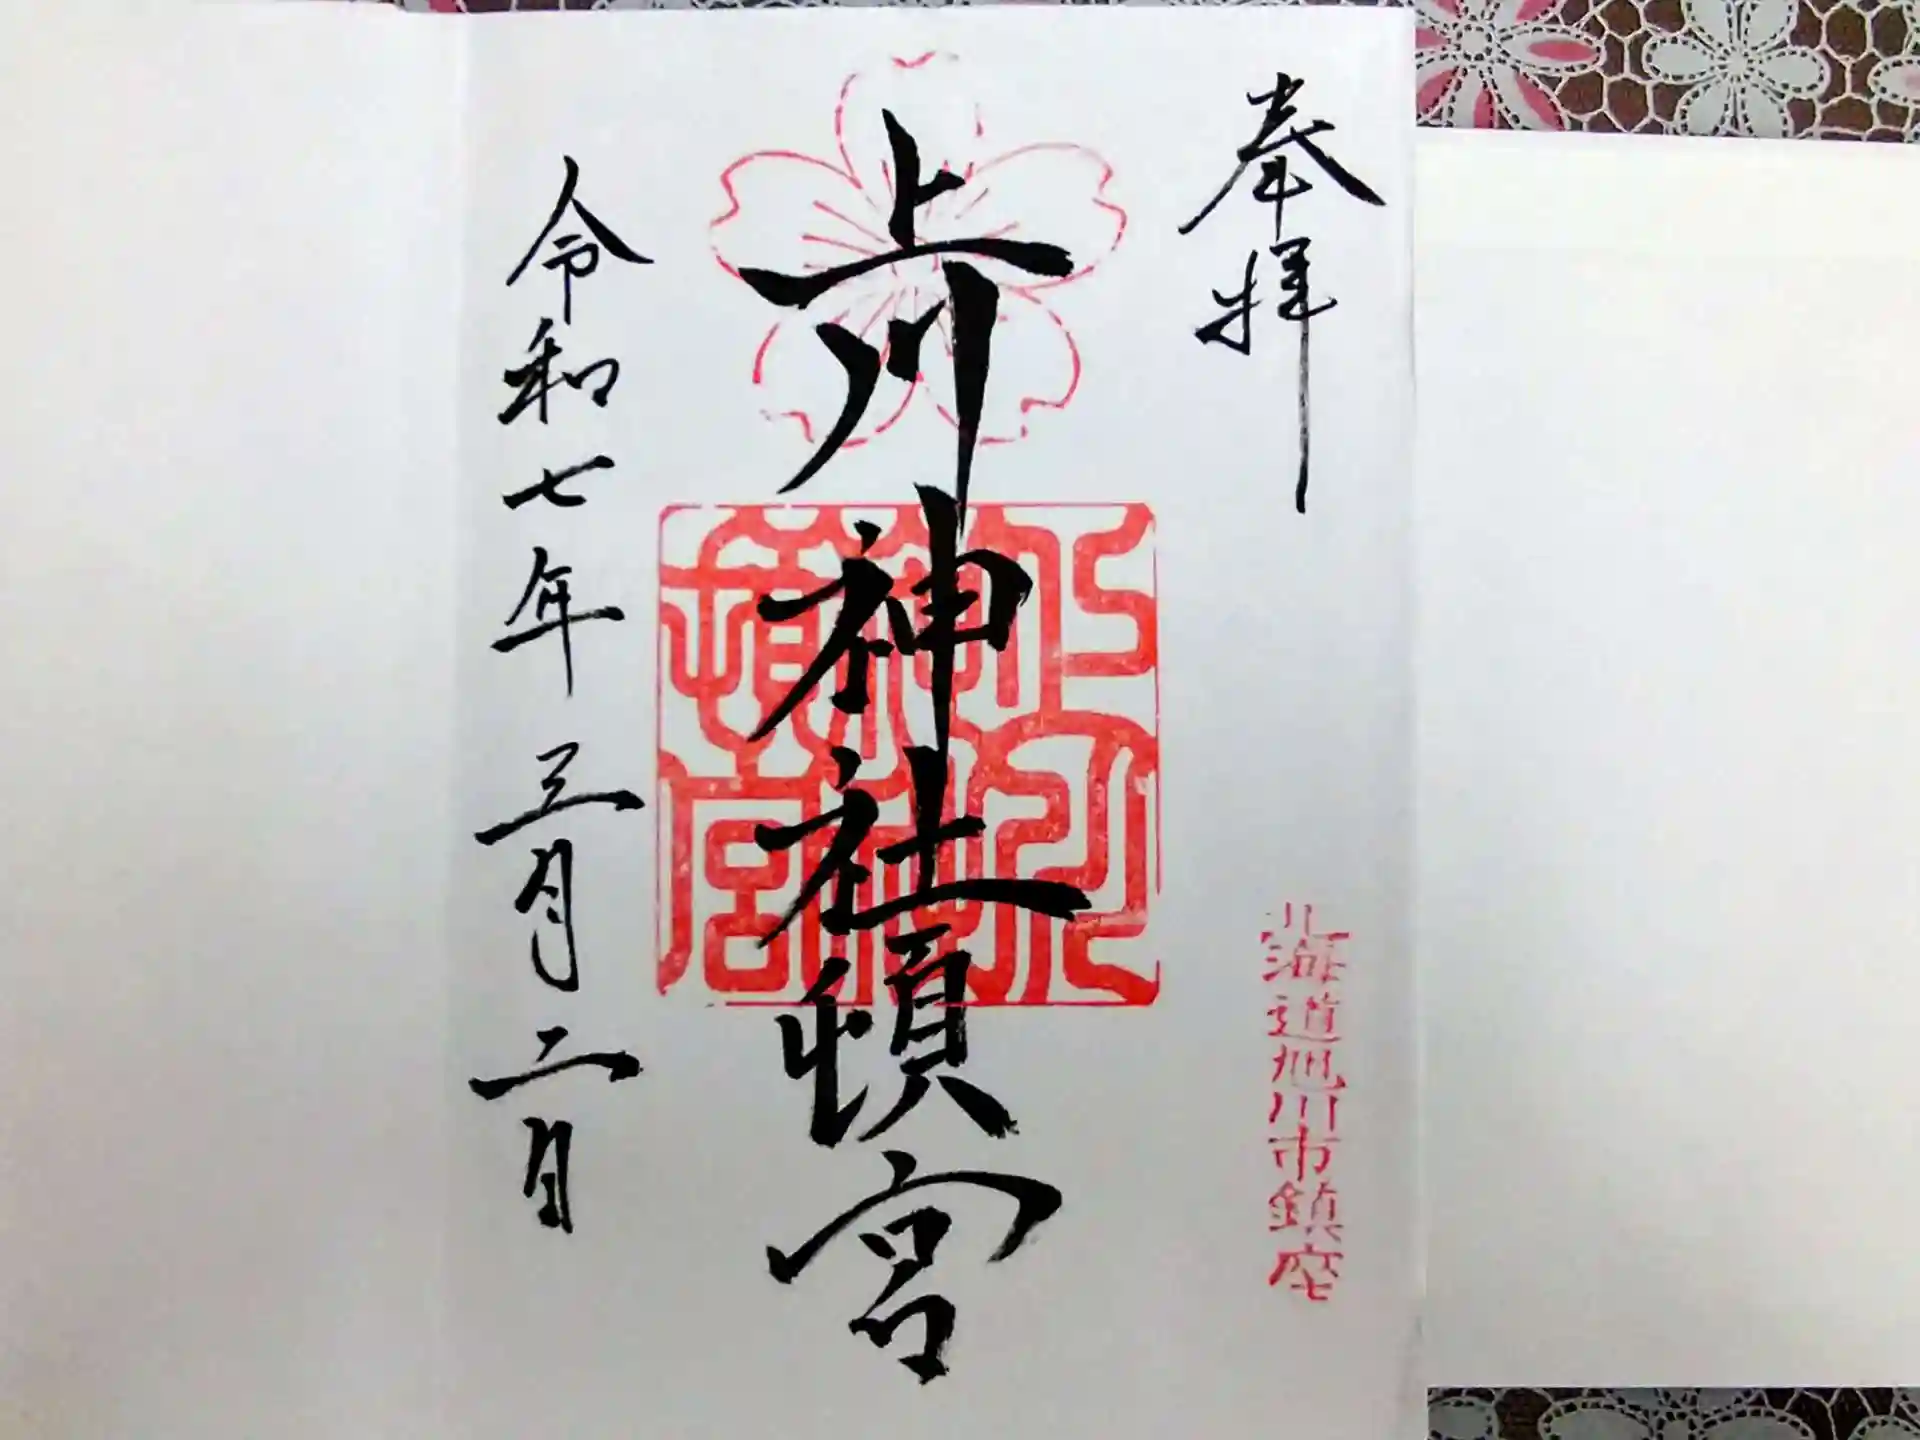 奉拝
北海道旭川市鎮座
上川神社頓宮
上川神社頓宮
令和七年三月二日